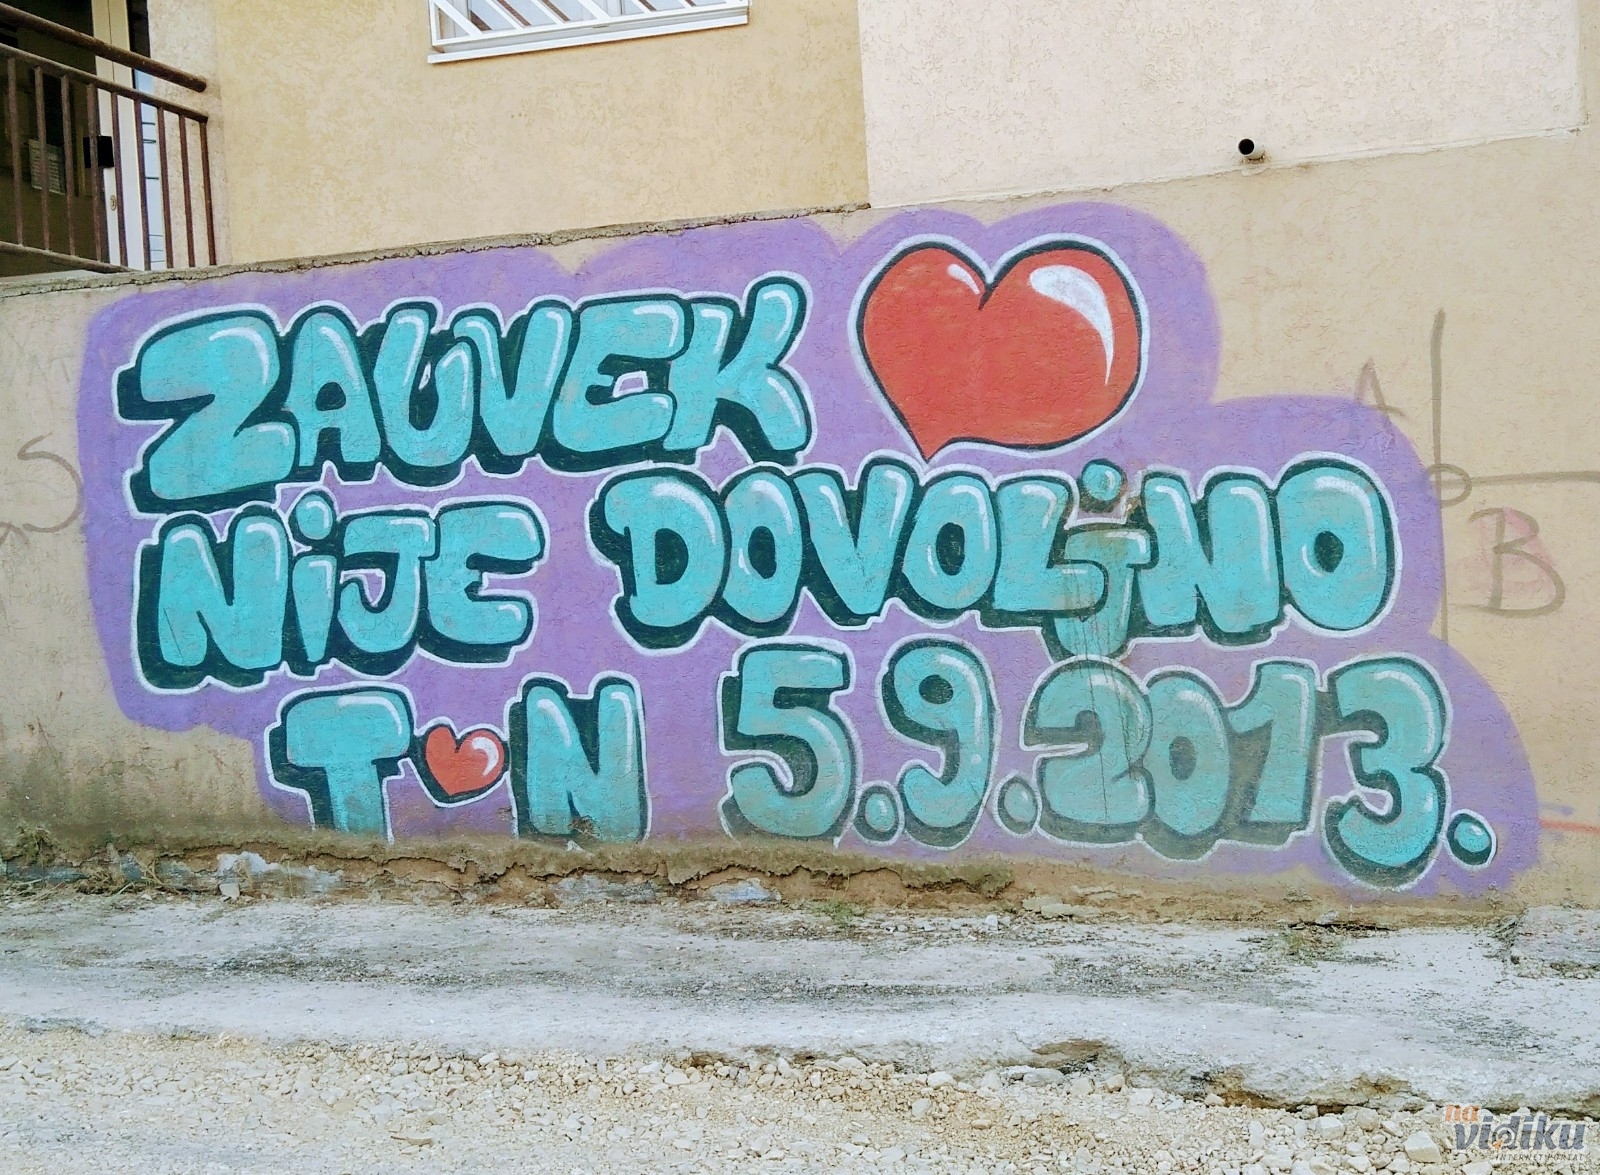 ZAUVEK
NiJE DOVOLjNO
T N 5.9.2013.
S
A
B
na
vidiku
INTERNET PORTAL